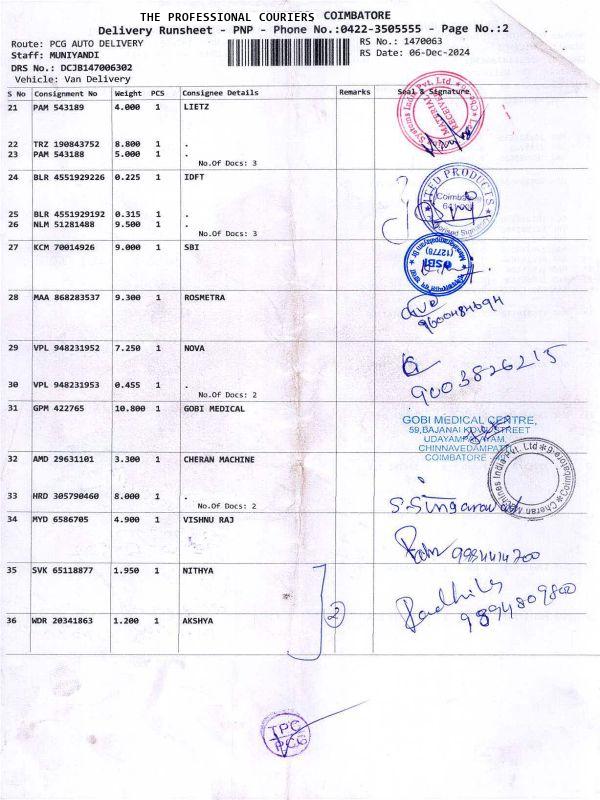 THE PROFESSIONAL COURIERS COIMBATORE
Delivery Runsheet - PNP - Phone No.:0422-3505555 - Page No.:2
Route: PCG AUTO DELIVERY
Staff: MUNIYANDI
DRS No.: DCJB147006302
Vehicle: Van Delivery
RS No.: 1470063
RS Date: 06-Dec-2024
S No Consignment No Weight PCS Consignee Details Remarks Seal & Signature
21 PAM 543189 4.000 1 LIETZ
22 TRZ 190843752 8.800 1 .
23 PAM 543188 5.000 1 .
No.Of Docs: 3
24 BLR 4551929226 0.225 1 IDFT
25 BLR 4551929192 0.315 1 .
26 NLM 51281488 9.500 1 .
No.Of Docs: 3
27 KCM 70014926 9.000 1 SBI
SBI
(12778)
28 MAA 868283537 9.300 1 ROSMETRA
9600484694
29 VPL 948231952 7.250 1 NOVA
9003826215
30 VPL 948231953 0.455 1 .
No.Of Docs: 2
31 GPM 422765 10.800 1 GOBI MEDICAL
GOBI MEDICAL CENTRE,
59,BAJANAI KOVIL STREET
UDAYAMPALAYAM,
CHINNAVEDAMPATTI
COIMBATORE
32 AMD 29631101 3.300 1 CHERAN MACHINE
Cheran Machines India Pvt Ltd
33 HRD 305790460 8.000 1 .
No.Of Docs: 2
34 MYD 6586705 4.900 1 VISHNU RAJ
35 SVK 65118877 1.950 1 NITHYA
9894809800
36 WDR 20341863 1.200 1 AKSHYA
2
TPC
PCG